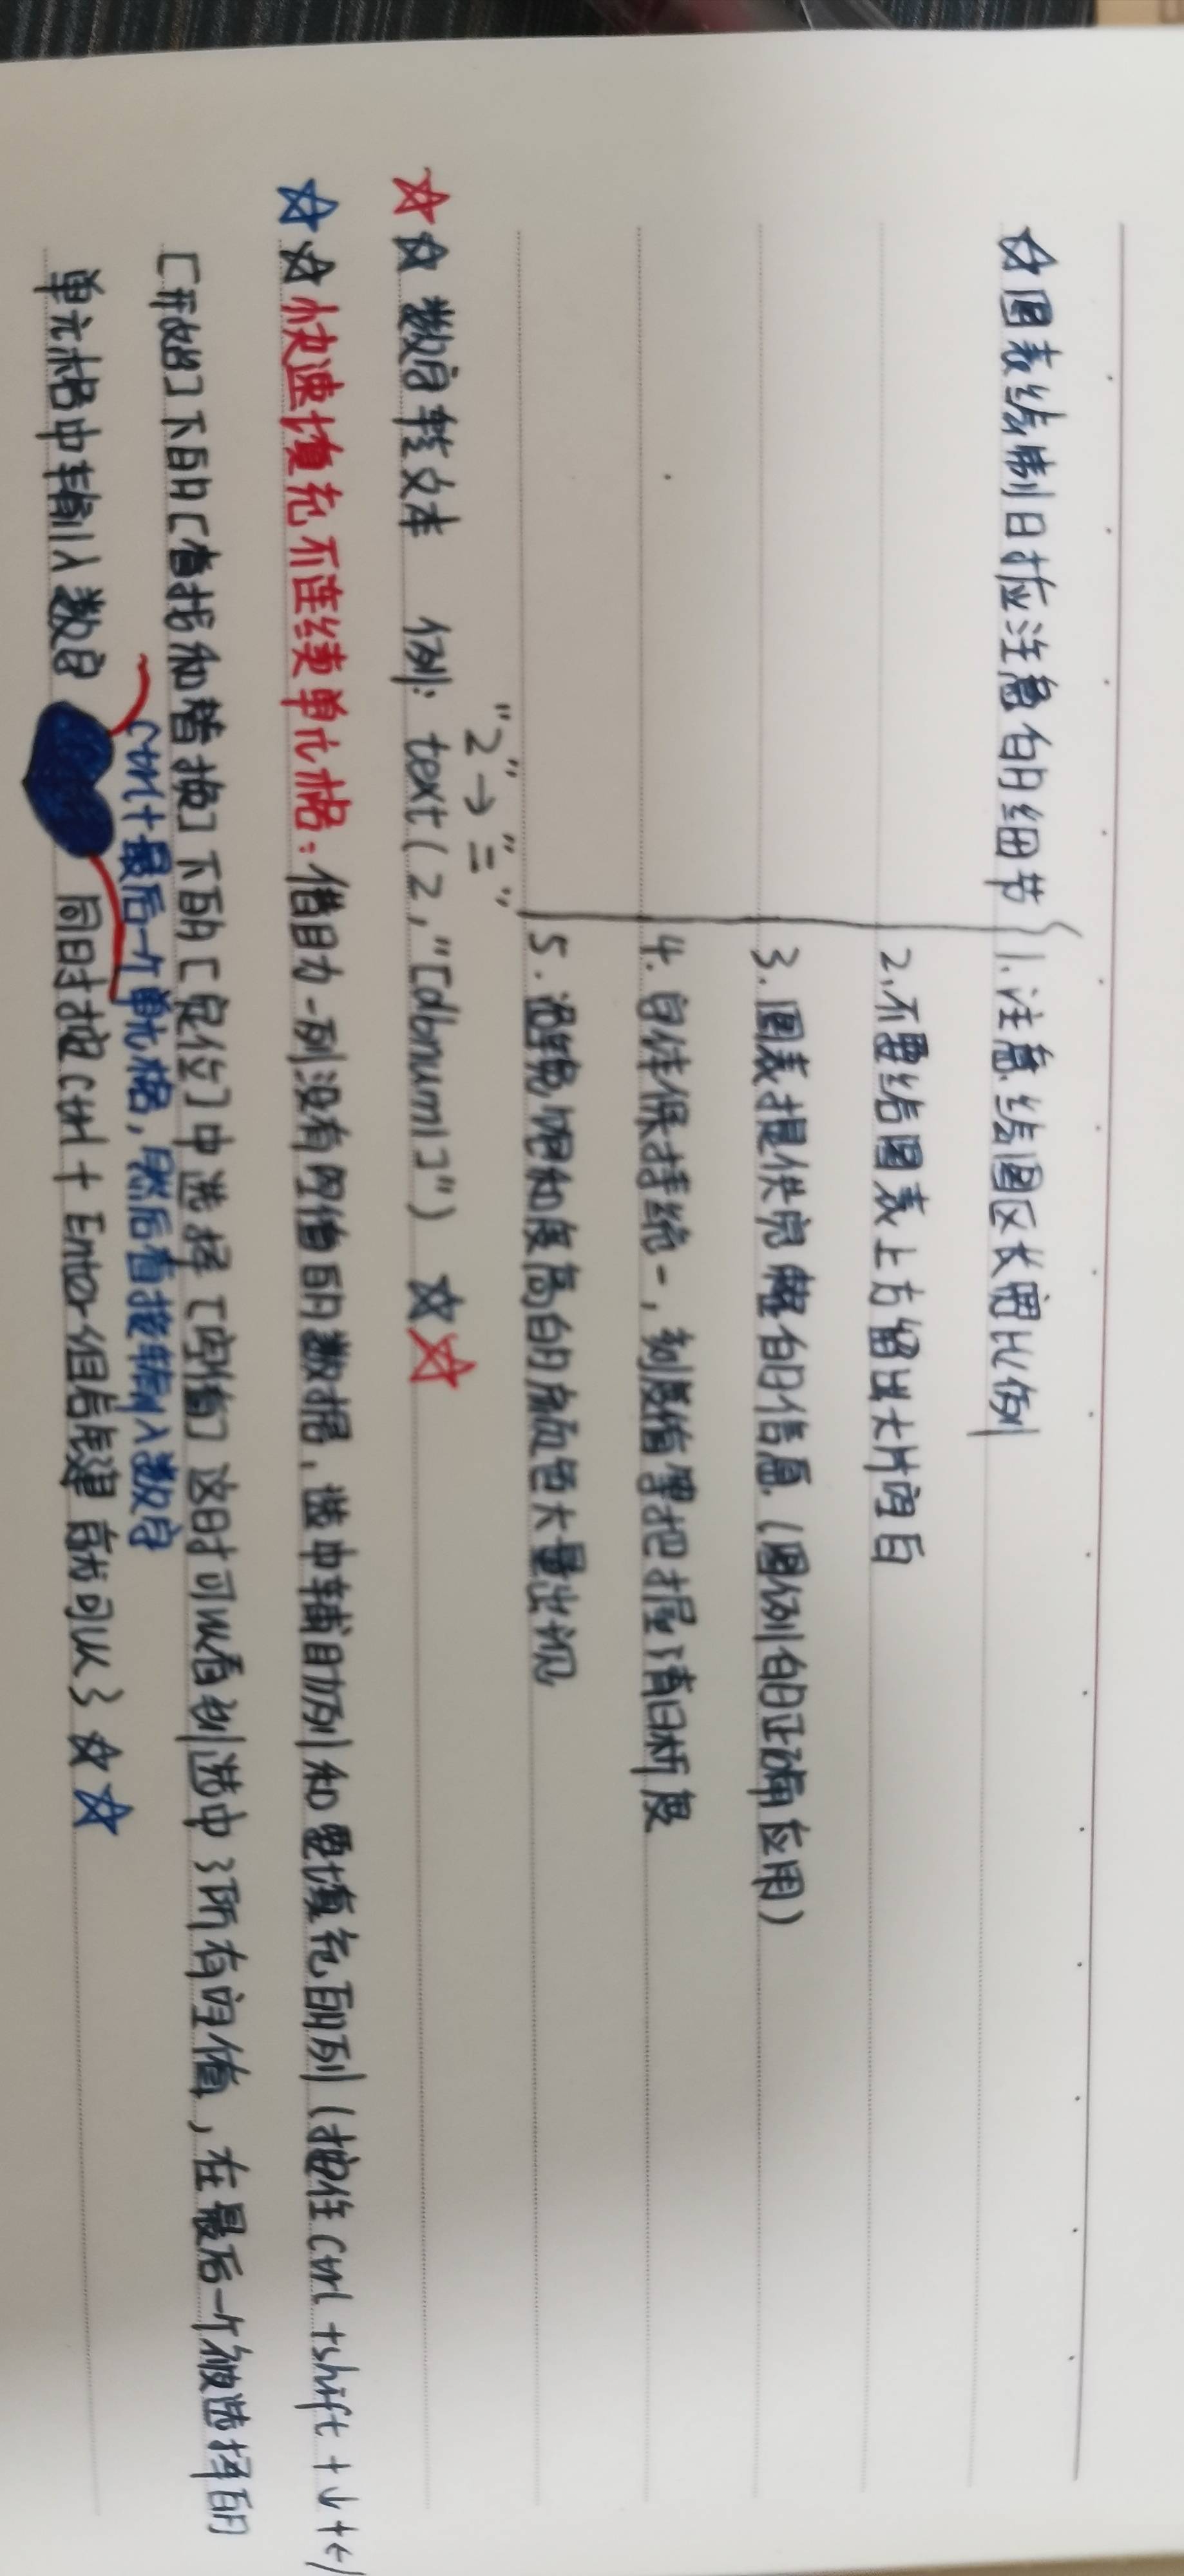 ☆图表绘制时应注意的细节 1.注意绘图区长宽比例
2.不要给图表上方留出大片空白
3.图表提供完整的信息(图例的正确应用)
4.字体保持统一,刻度值掌把握清晰度
5.避免饱和度高的颜色大量出现
"2"→"二"
☆☆数字转文本 例:text(2,"[dbnum1]")☆☆
☆☆快速填充不连续单元格:借助一列没有空值的数据,选中辅助列和要填充的列(按住Ctrl+shift+↓+←)
[开始]下的[查找和替换]下的[定位]中选择[空值]这时可以看到选中了所有空值,在最后一个被选择的
Ctrl+最后一个单元格,然后直接输入数字
单元格中输入数字 同时按ctrl+Enter组合键就可以了☆☆